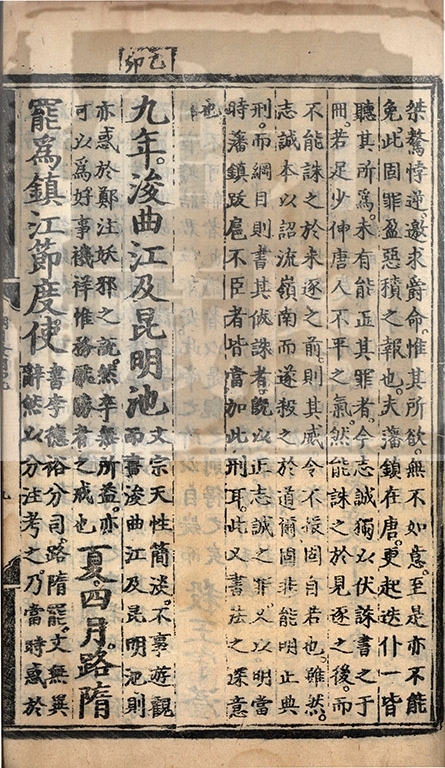 乙卯
桀驁悖逆邀求爵命惟其所欲無不如意至是亦不能
免此固罪盈惡積之報也夫藩鎮在唐更起迭仆一皆
聽其所爲未有能正其罪者今志誠獨以伏誅書之于
冊若足少伸唐人不平之氣然能誅之於見逐之後而
不能誅之於未逐之前則其威令不振固自若也雖然
志誠本以詔流嶺南而遂殺之於道爾固非能明正典
刑而綱目則書其伏誅者既以正志誠之罪又以明當
時藩鎮跋扈不臣者皆當加此刑耳此又書法之深意
也
九年浚曲江及昆明池
文宗天性簡淡不事遊觀
而書浚曲江及昆明池則
亦惑於鄭注妖邪之說然卒無所益亦
可以爲好事禨祥惟務厭勝者之戒也
夏四月路隋
罷爲鎮江節度使
書李德裕分司路隋罷文無異
辭然以分注考之乃當時惑於